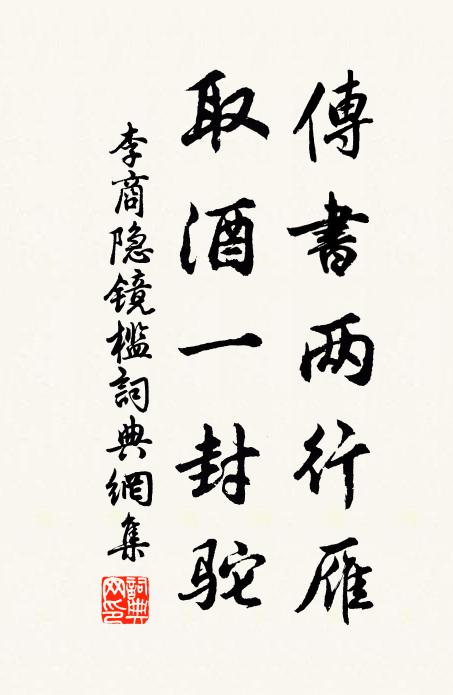 傳書两行雁
取酒一封駝
李商隐镜槛詞典網集
詞典网印